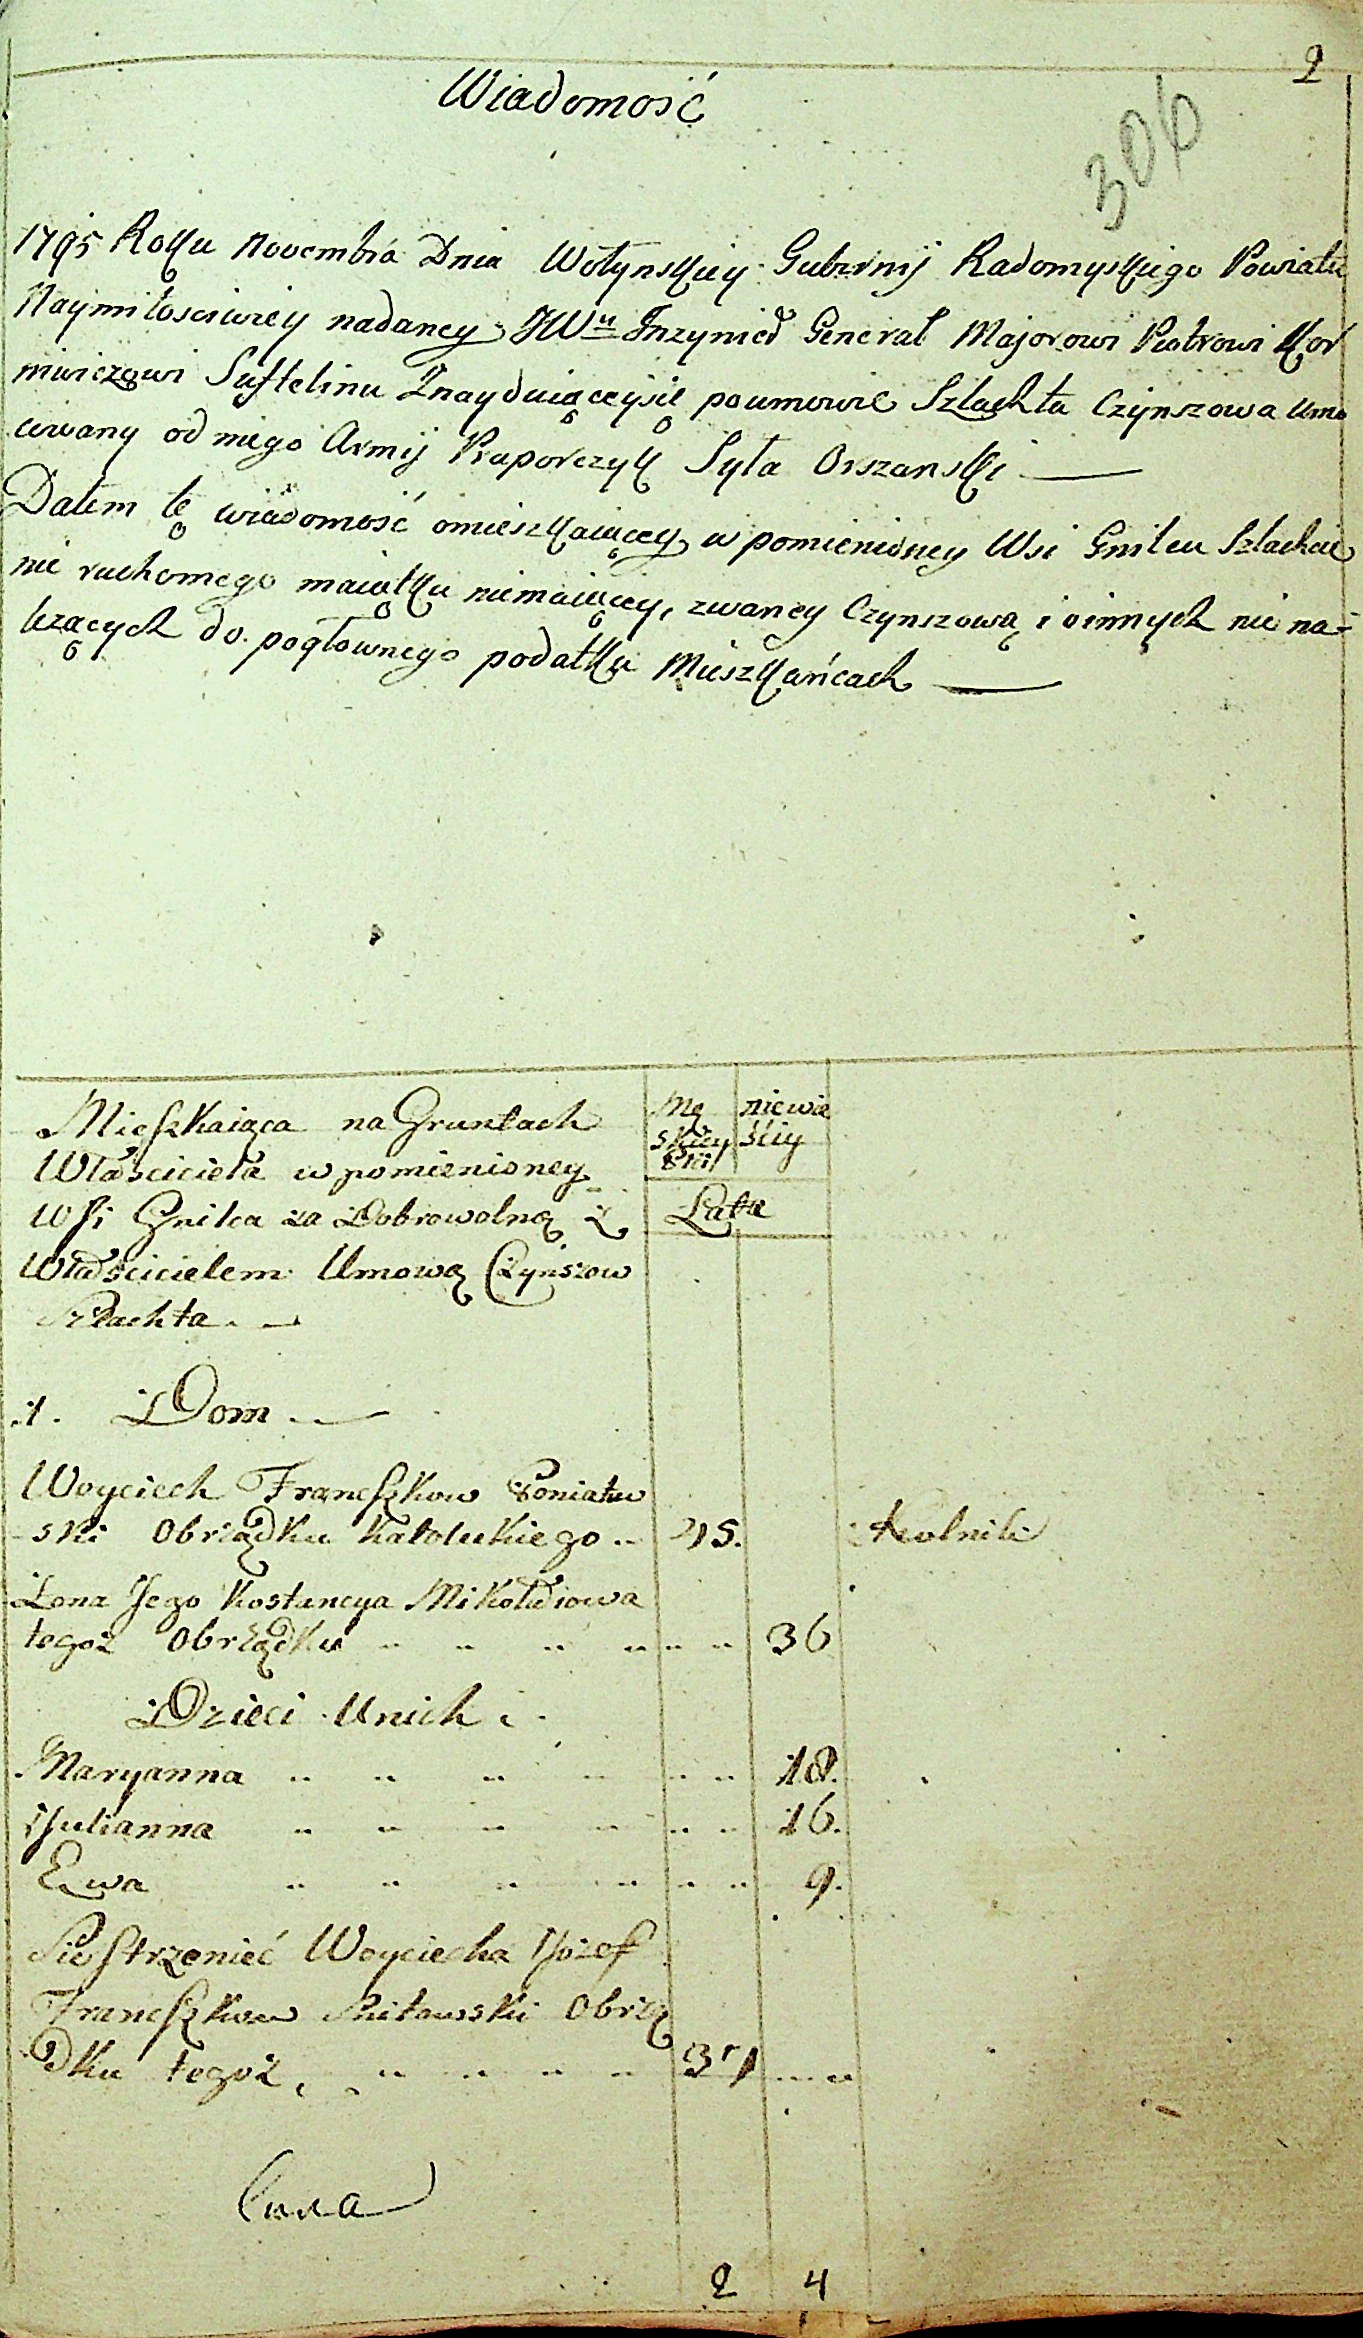 2
Wiadomość
306
1795 Roku Novembra Dnia Wołynskiey Gubernij Radomyskiego Powiatu
Naymiłosciwiey nadaney JWu Inzynier General Majorowi Piotrowi Kor
miwiczowi Suftelinu Znayduiąceysię poumowie Szlachta Czynszowa umo
cowany od niego Armij Praporczyk Syła Orszanski
Dałem tę wiadomość omieszkaiącey w pomienioney Wsi Gnilcu Szlachcie
nie ruchomego maiątku niemaiącey, zwaney Czynszową i oinnych nie na=
leżących do pogłownego podatku Mieszkańcach
Mieszkaiąca na Gruntach
Właściciela w pomienioney
Wsi Gnilca za Dobrowolną z
Właścicielem Umową Czynszow
Szlachta
Mę niewie
skiey ściy
Płci
Lata
1. Dom
Woyciech Franciszkow Poniatow
ski Obrządku Katolickiego 45. Rolnik
Żona Jego Kostancya Mikołaiowa
tegoż Obrządku 36
Dzieci Unich
Maryanna 18.
Julianna 16.
Ewa 9.
Siostrzenieć Woyciecha Jozef
Franciszkow Obrzą
dku tegoż 37
2 4